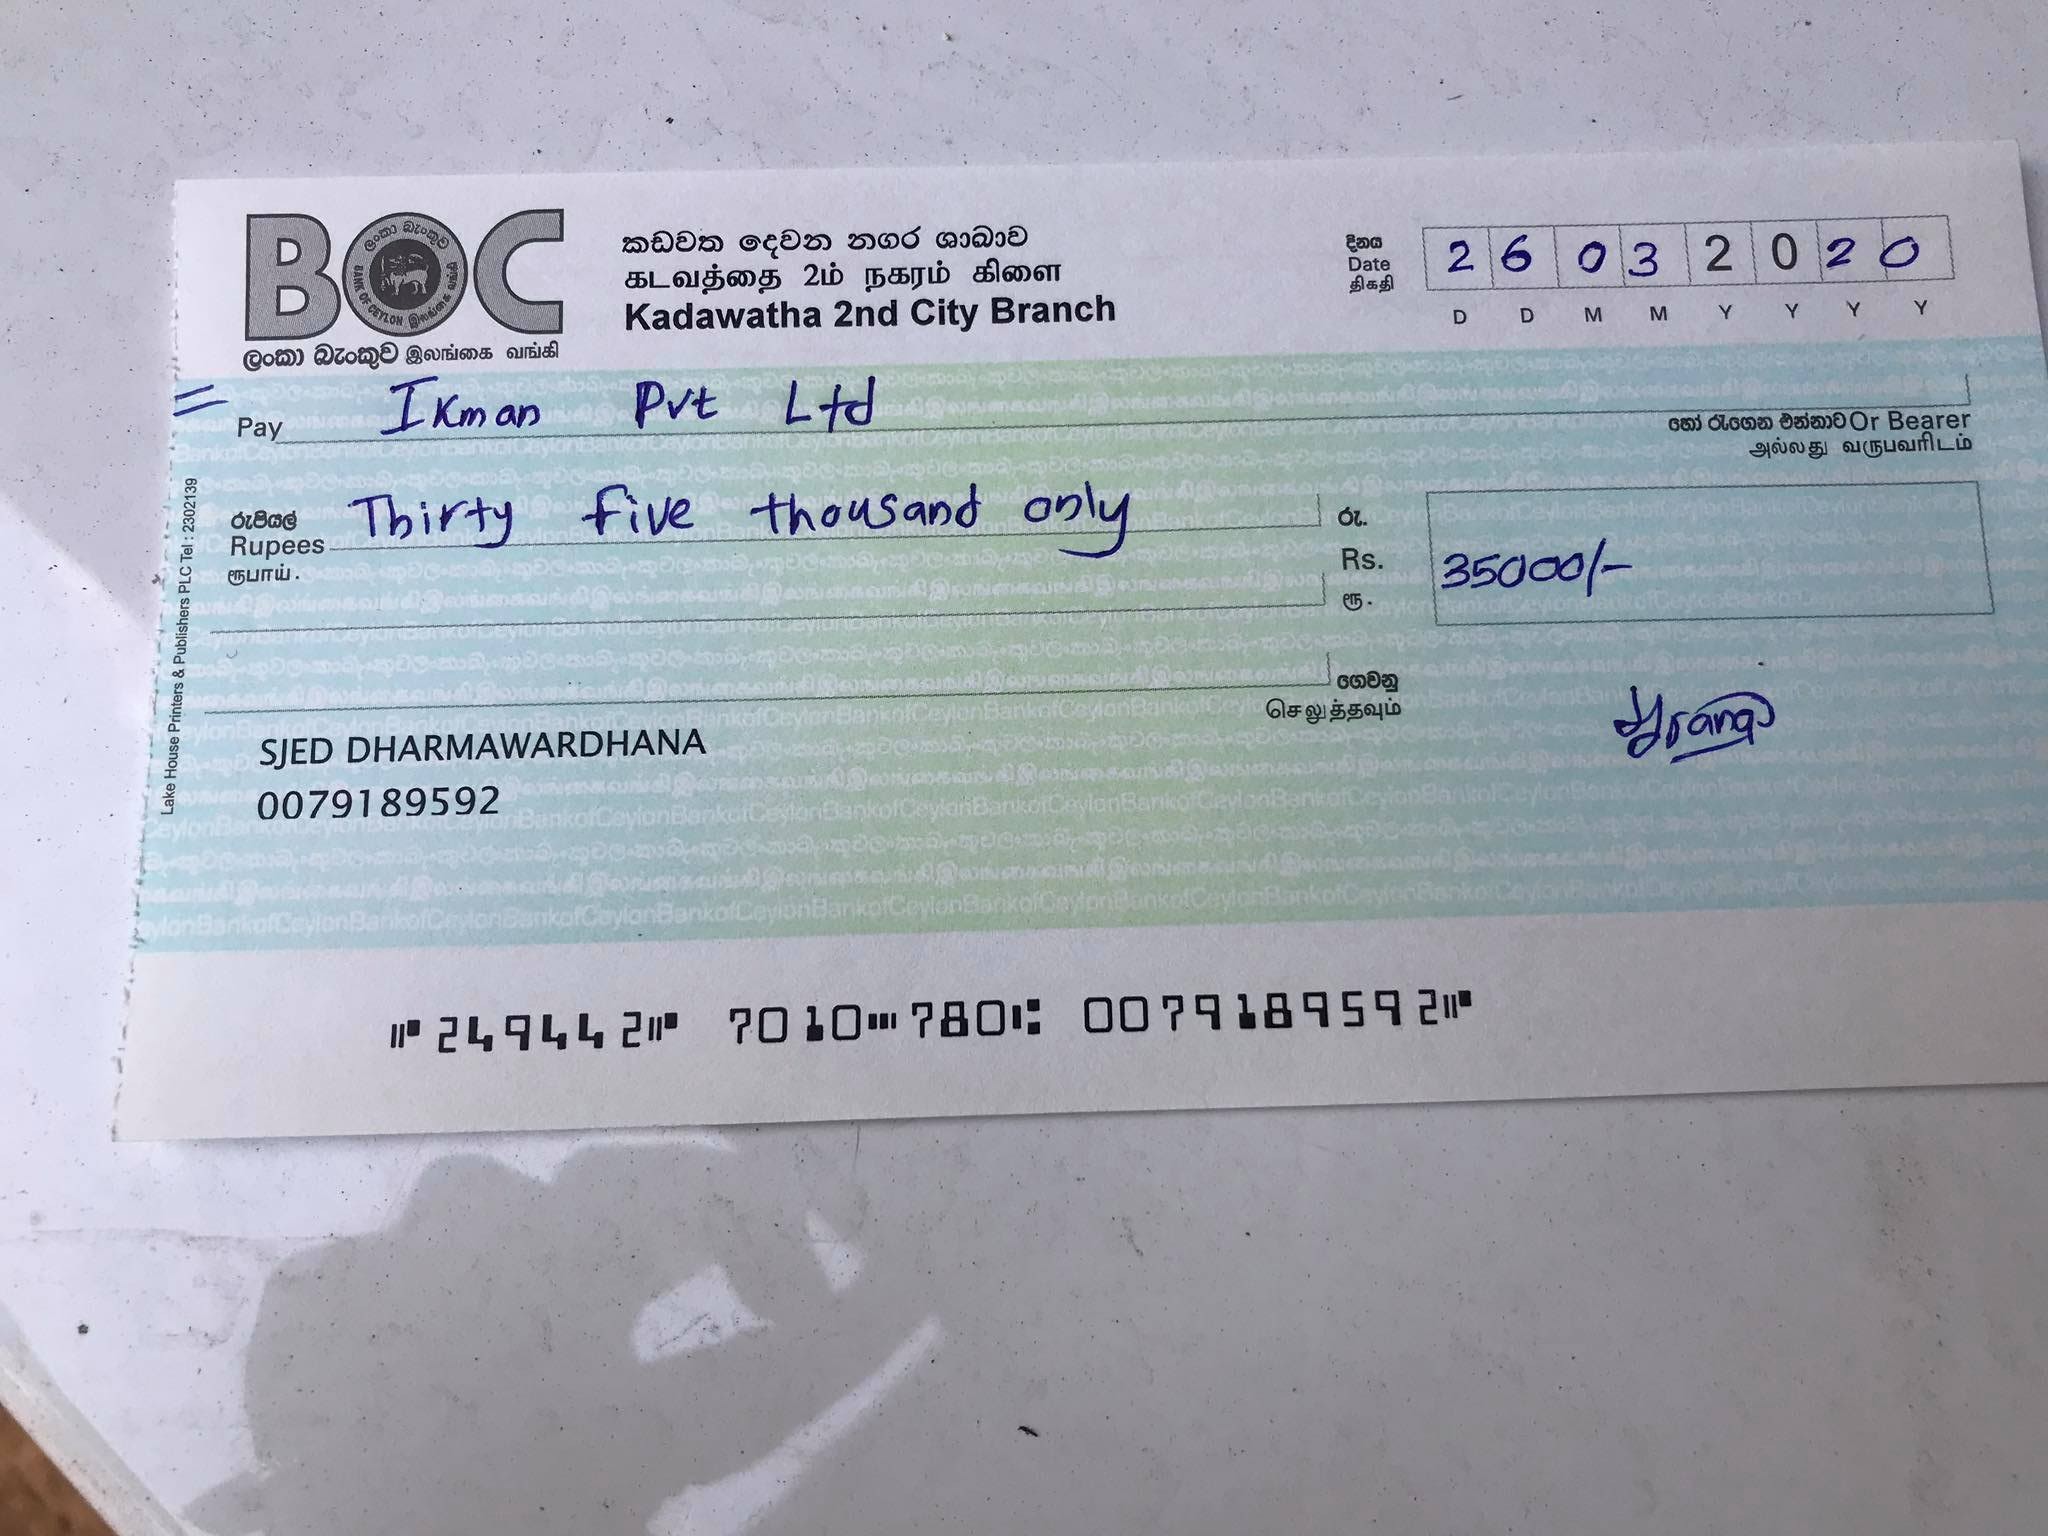 BOC
ලංකා බැංකුව BANK OF CEYLON இலங்கை வங்கி
ලංකා බැංකුව இலங்கை வங்கி
කඩවත දෙවන නගර ශාඛාව
கடவத்தை 2ம் நகரம் கிளை
Kadawatha 2nd City Branch
දිනය
Date
திகதி
2 6 0 3 2 0 2 0
D D M M Y Y Y Y
Pay Ikman Pvt Ltd
හෝ රැගෙන එන්නාට Or Bearer
அல்லது வருபவரிடம்
රුපියල්
Rupees Thirty five thousand only
ரூபாய்.
රු.
Rs. 35000/-
ரூ.
ගෙවනු
செலுத்தவும்
SJED DHARMAWARDHANA
0079189592
Lake House Printers & Publishers PLC Tel : 2302139
⑈249442⑈ 7010⑉780⑆ 0079189592⑈